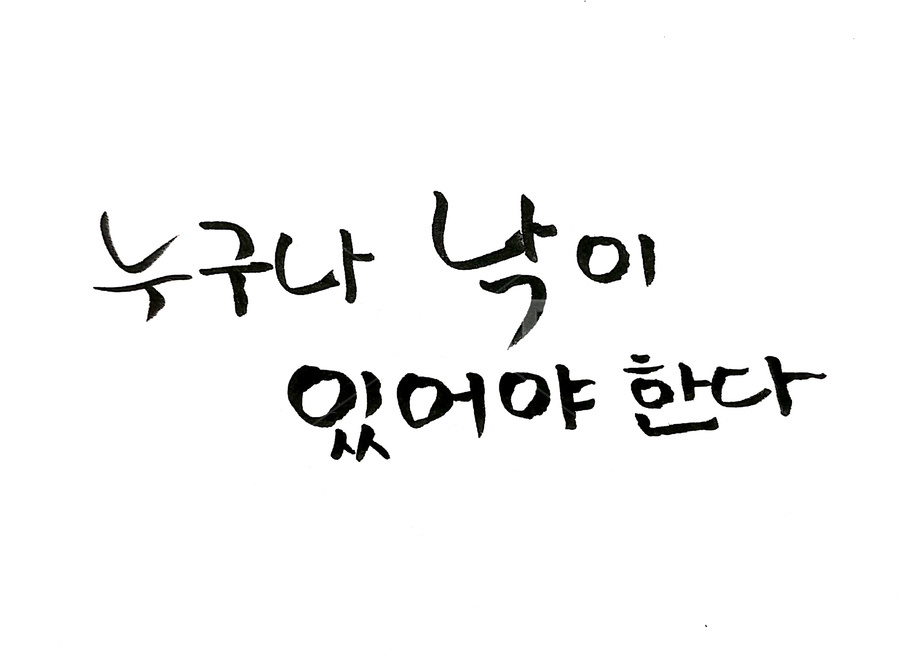 누구나 낙이
있어야 한다